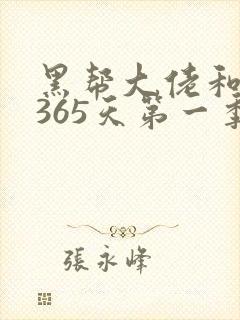 黑帮大佬和
365天第一季
張永峰